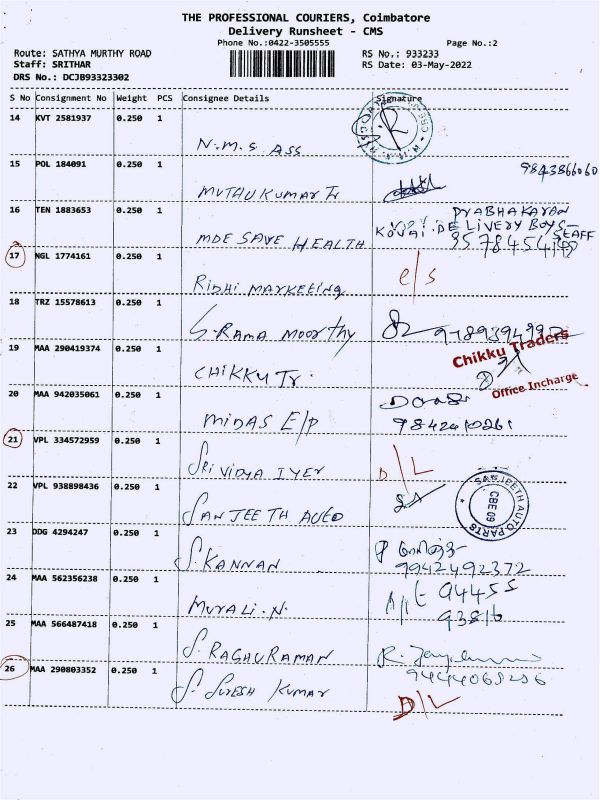 THE PROFESSIONAL COURIERS, Coimbatore
Delivery Runsheet - CMS
Phone No.:0422-3505555
Page No.:2
Route: SATHYA MURTHY ROAD
RS No.: 933233
Staff: SRITHAR
RS Date: 03-May-2022
DRS No.: DCJB93323302
S No Consignment No Weight PCS Consignee Details Signature
14 KVT 2581937 0.250 1
N.M.S ASS
15 POL 184091 0.250 1
9843866060
MUTHUKUMAR Tr
16 TEN 1883653 0.250 1
PRABHAKARAN
KOVAI.DELIVERY BOYS-
STAFF
MDE SAVE HEALTH
17 NGL 1774161 0.250 1
RIDHI MARKETING e/s
18 TRZ 15578613 0.250 1
S.RAMA MOORTHY
Chikku Traders
19 MAA 290419374 0.250 1
CHIKKU Tr.
Office Incharge
20 MAA 942035061 0.250 1
MIDAS E/P
21 VPL 334572959 0.250 1
SRI VIDYA IYER D/L
22 VPL 938898436 0.250 1
SANJEETH AUTO PARTS
CBE 09
SANJEETH AUTO
23 DDG 4294247 0.250 1
S.KANNAN
9942492372
24 MAA 562356238 0.250 1
94455
93816
MURALI.N.
25 MAA 566487418 0.250 1
S.RAGHURAMAN
26 MAA 290803352 0.250 1
S.SURESH KUMAR
D/L